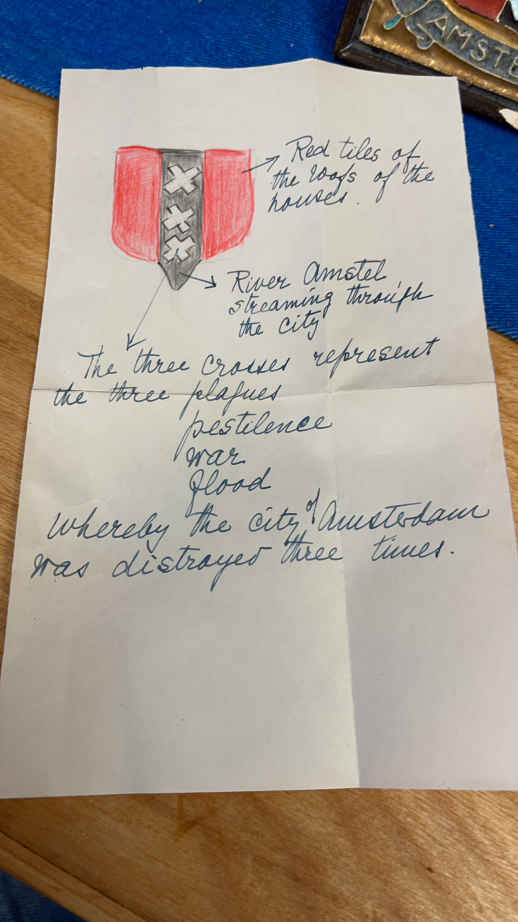 AMSTE
Red tiles of
the roofs of the
houses.
River Amstel
streaming through
the city
The three crosses represent
the three plagues
pestilence
war
flood
Whereby the city of Amsterdam
was distroyed three times.